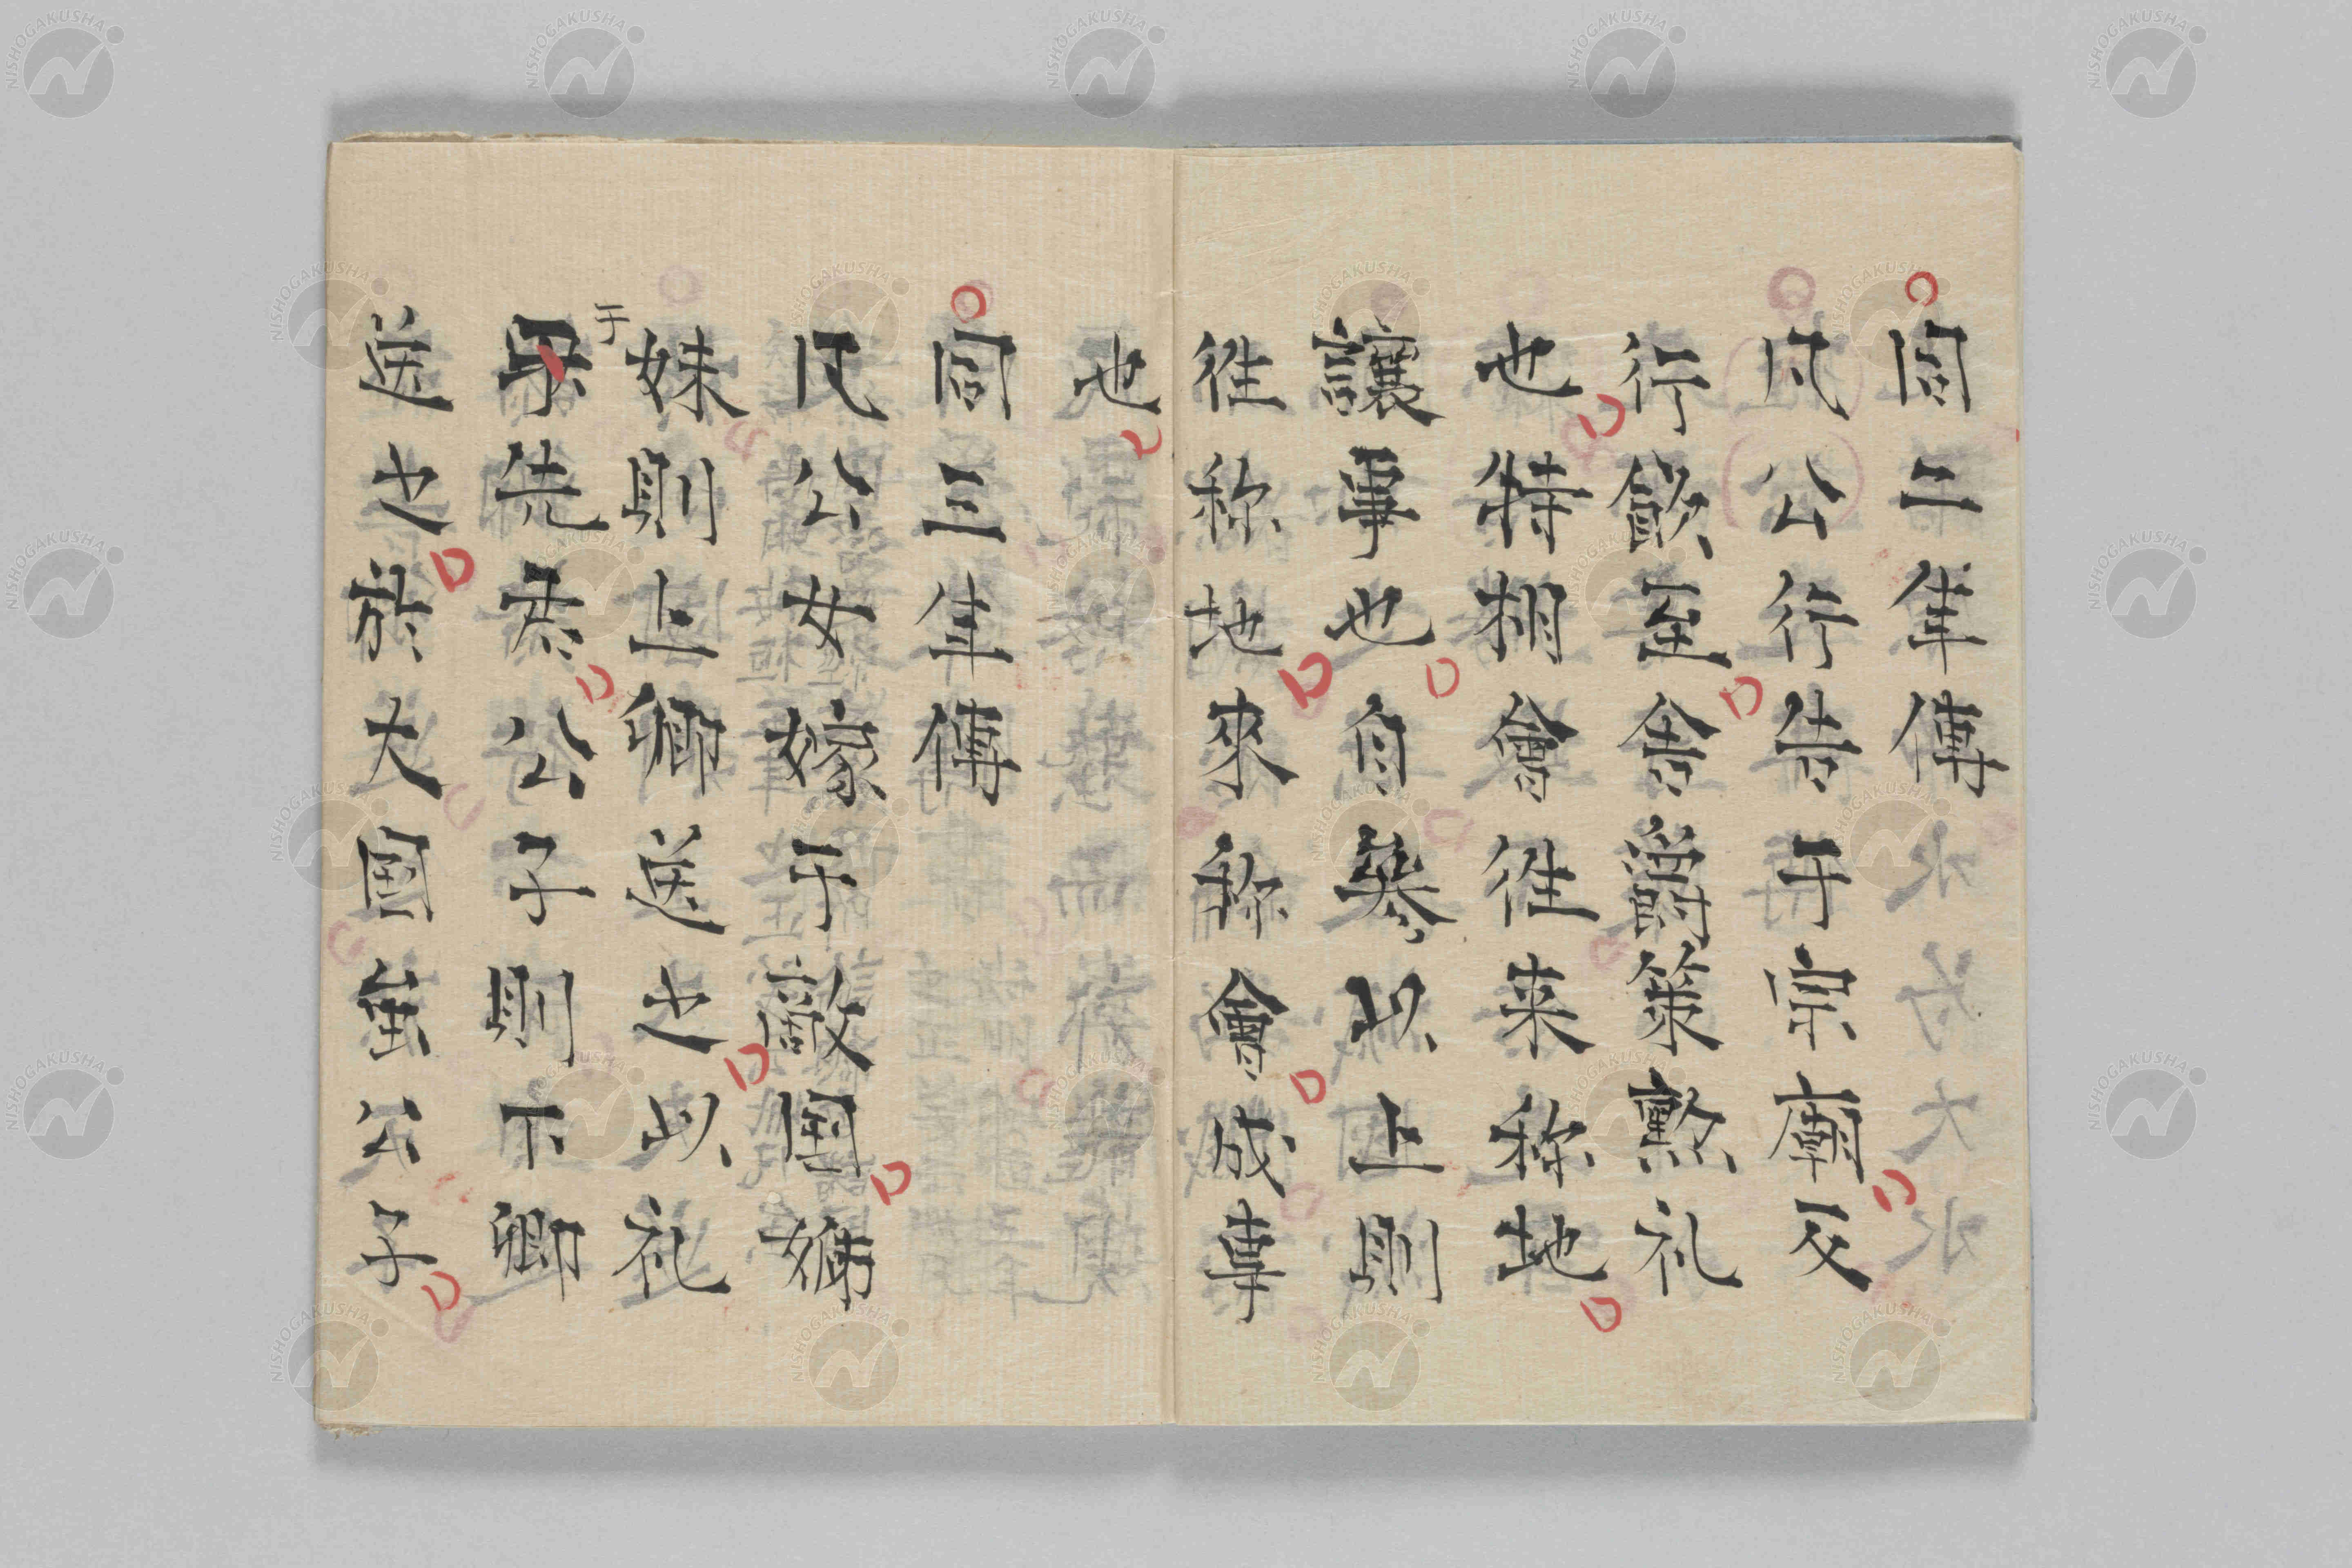 同二年傳
凡公行告于宗廟反
行飲至舍爵策勲礼
也特相會往来称地
讓事也自參以上則
往称地來称會成事
也
同三年傳
凡公女嫁于敵国姉
妹則上卿送之以礼
于先君公子則下卿
送之於大國虽公子
NISHOGAKUSHA